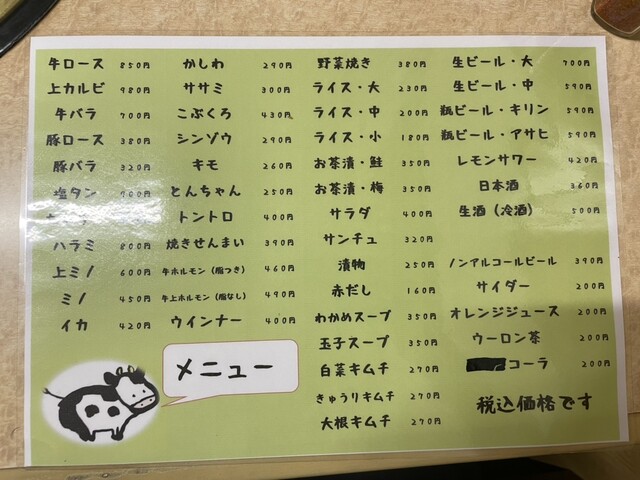 牛ロース 850円
上カルビ 980円
牛バラ 700円
豚ロース 380円
豚バラ 320円
塩タン 900円
ハラミ 800円
上ミノ 600円
ミノ 450円
イカ 420円
かしわ 290円
ササミ 300円
こぶくろ 430円
シンゾウ 290円
キモ 260円
とんちゃん 250円
トントロ 400円
焼きせんまい 390円
牛ホルモン（脂つき） 460円
牛上ホルモン（脂なし） 490円
ウインナー 400円
メニュー
野菜焼き 380円
ライス・大 230円
ライス・中 200円
ライス・小 180円
お茶漬・鮭 350円
お茶漬・梅 350円
サラダ 400円
サンチュ 320円
漬物 250円
赤だし 160円
わかめスープ 350円
玉子スープ 350円
白菜キムチ 270円
きゅうりキムチ 270円
大根キムチ 270円
生ビール・大 700円
生ビール・中 590円
瓶ビール・キリン 590円
瓶ビール・アサヒ 590円
レモンサワー 420円
日本酒 360円
生酒（冷酒） 500円
ノンアルコールビール 390円
サイダー 200円
オレンジジュース 200円
ウーロン茶 200円
コーラ 200円
税込価格です